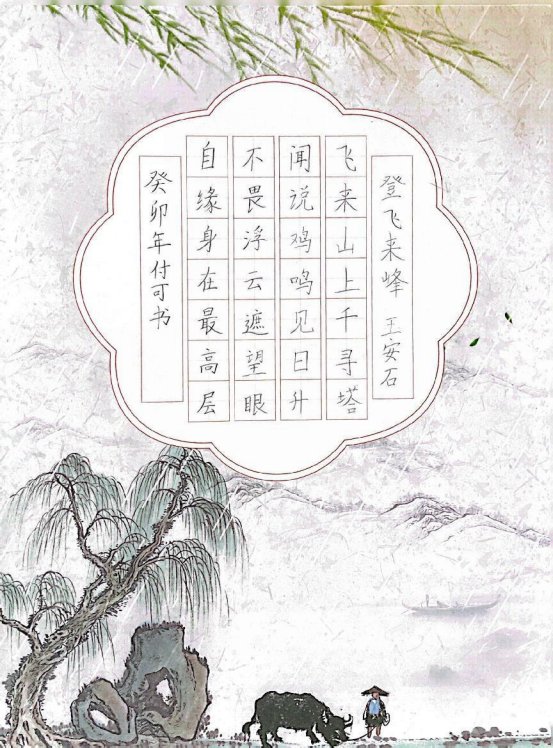 登飞来峰 王安石
飞来山上千寻塔
闻说鸡鸣见日升
不畏浮云遮望眼
自缘身在最高层
癸卯年付可书